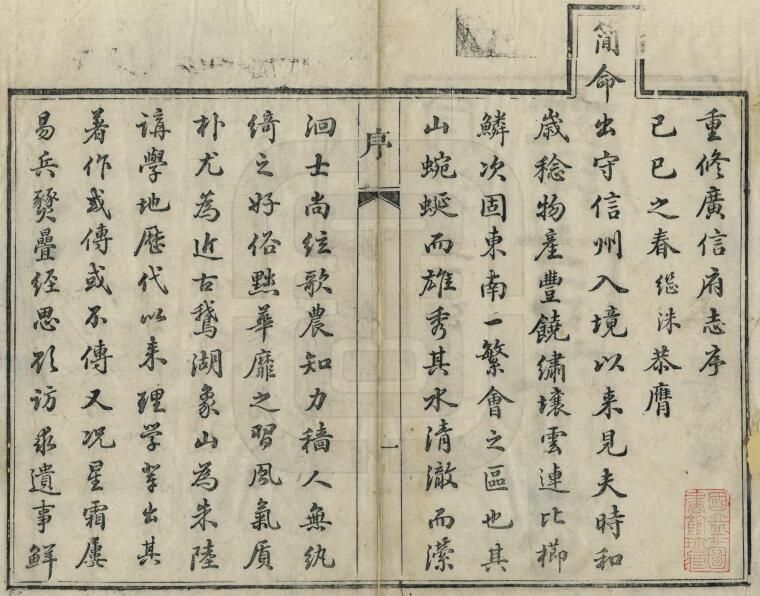 重修廣信府志序
己巳之春繼洙恭膺
簡命出守信州入境以来見夫時和
歲稔物產豐饒繡壤雲連比櫛
鱗次固東南一繁會之區也其
山蜿蜒而雄秀其水清澈而瀠
序
一
洄士尚絃歌農知力穡人無紈
綺之好俗黜華靡之習風氣質
朴尤為近古鵞湖象山為朱陸
講學地歷代以来理学輩出其
著作或傳或不傳又况星霜屢
易兵燹疊經思欲訪求遺事鮮